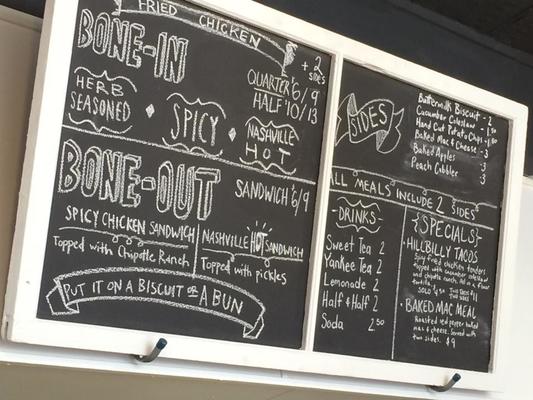 FRIED CHICKEN
BONE-IN
+ 2 sides
QUARTER 6/9
HALF 10/13
HERB SEASONED
SPICY
NASHVILLE HOT
BONE-OUT
SANDWICH 6/9
SPICY CHICKEN SANDWICH
Topped with Chipotle Ranch
NASHVILLE HOT SANDWICH
Topped with pickles
PUT IT ON A BISCUIT OR A BUN
SIDES
Buttermilk Biscuit - 2
Cucumber Coleslaw - 1.50
Hand Cut Potato Chips - 1.50
Baked Mac & Cheese - 3
Baked Apples - 3
Peach Cobbler - 3
ALL MEALS INCLUDE 2 SIDES
DRINKS
Sweet Tea 2
Yankee Tea 2
Lemonade 2
Half & Half 2
Soda 2.50
SPECIALS
• HILLBILLY TACOS
Spicy fried chicken tenders
topped with cucumber coleslaw
and chipotle ranch. All in a flour
tortilla.
• BAKED MAC MEAL
Roasted red pepper baked
mac & cheese. Served with
two sides. $9